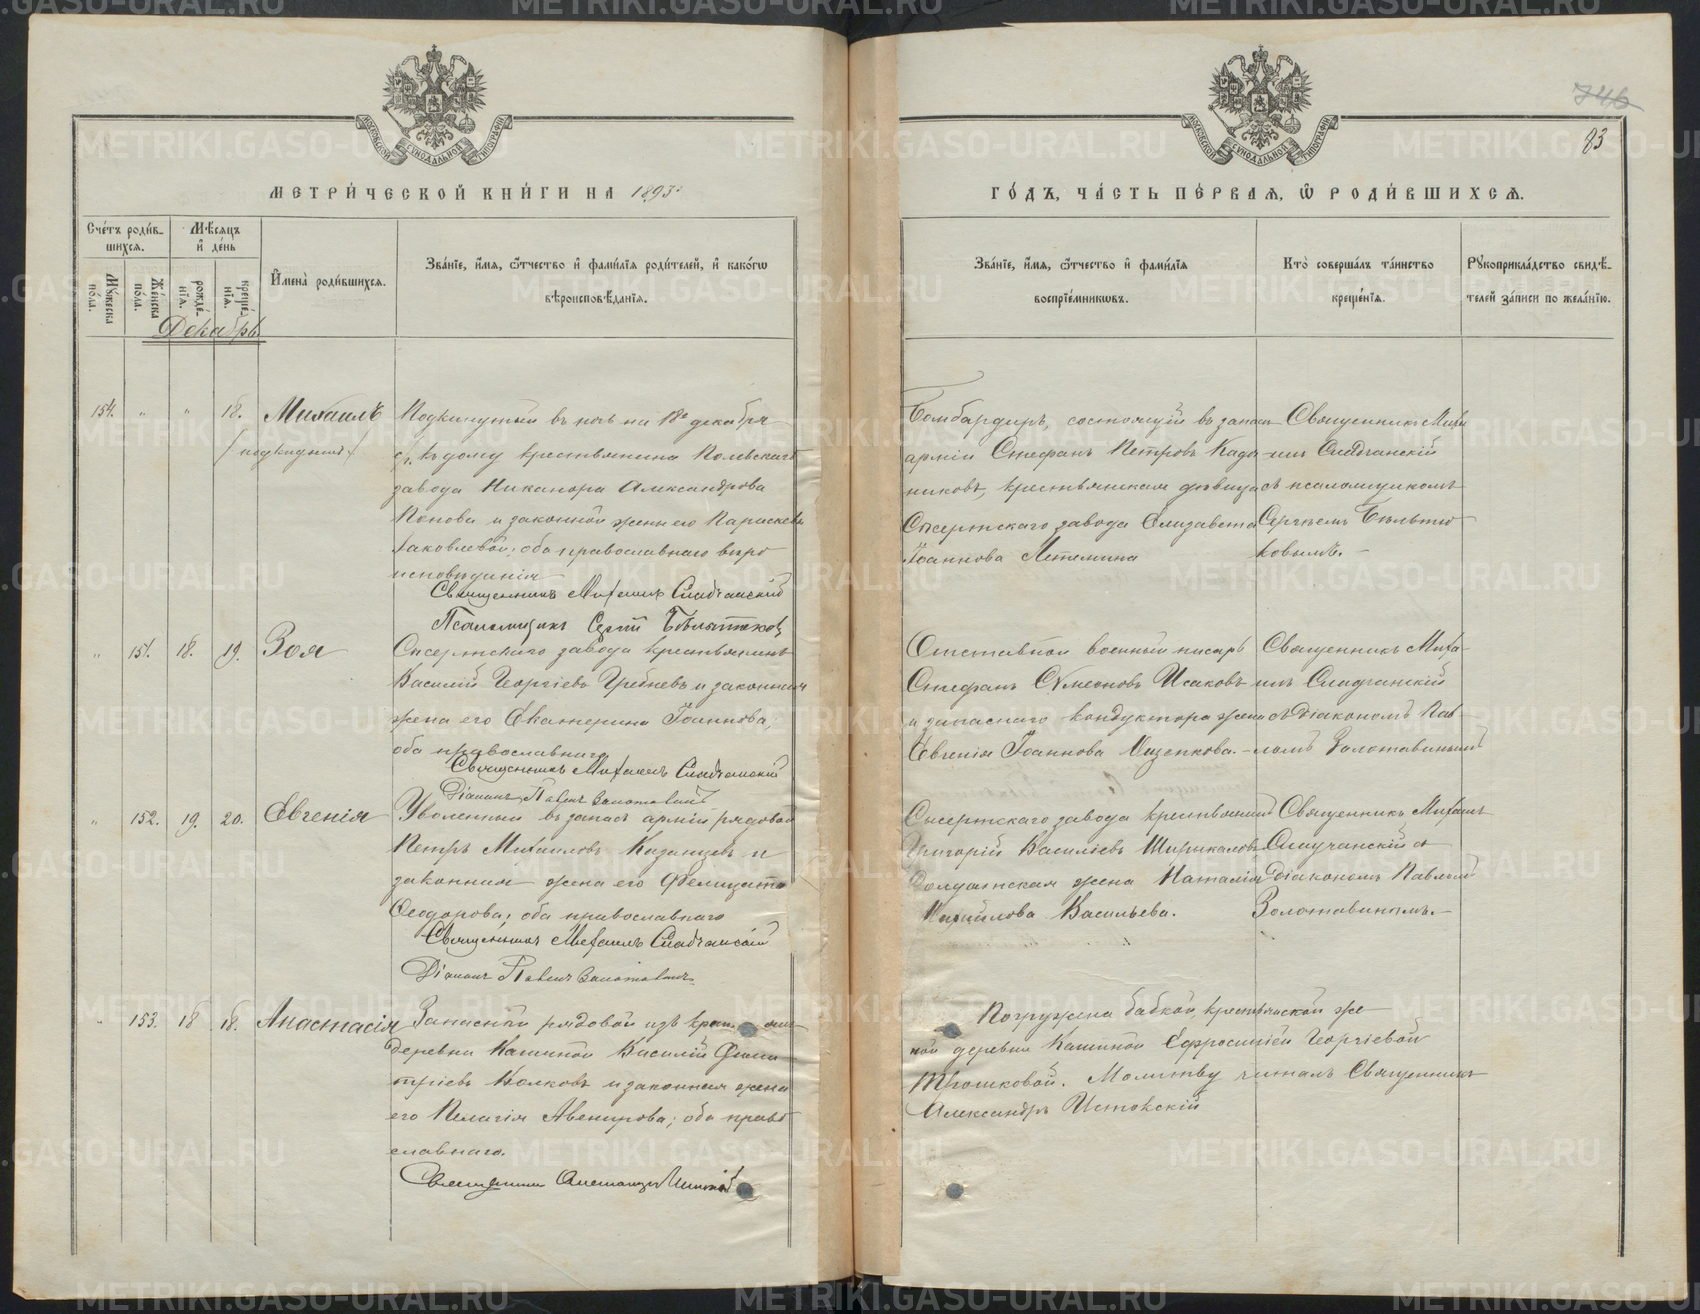 746
83
МОСКОВСКОЙ СѴНОДАЛЬНОЙ ТИПОГРАФІИ
МОСКОВСКОЙ СѴНОДАЛЬНОЙ ТИПОГРАФІИ
МЕТРИ́ЧЕСКОЙ КНИ́ГИ НА 1893.
ГО́ДЪ, ЧА́СТЬ ПЕ́РВАЯ, Ѡ РОДИ́ВШИХСЯ.
Сче́тъ роди́в-
шихся.
Мѣ́сяцъ
и де́нь
Му́жеска по́ла.
Же́нска по́ла.
рожде́нія.
креще́нія.
И҆мена̀ роди́вшихся.
Зва́нїе, и҆́мя, ѻ҆́тчество и҆ фами́лїя роди́телей, и҆ како́гѡ
вѣроисповѣ́данїя.
Зва́нїе, и҆́мя, ѻ҆́тчество и҆ фами́лїя
воспрїе́мникѡвъ.
Кто̀ соверша́лъ та́инство
креще́нїя.
Рꙋкоприкла́дство свидѣ́-
телей за́писи по жела́нїю.
Декабрь
154. " " 18. Михаилъ
(подкидышъ)
Подкинутый въ ночь на 18е декабря
къ дому крестьянина Полевскаго
завода Никанора Александрова
Попова и законной жены его Параскевы
Іаковлевой; оба православнаго вѣро
исповѣданія
Священникъ Михаилъ Сладчанскій
Псаломщикъ Сергій
Бомбардиръ, состоящій въ запасѣ
арміи Стефанъ Петровъ Кадо-
никовъ, крестьянская дѣвица
Сысертскаго завода Елизавета
Іоаннова Летемина
Священникъ Миха
илъ Сладчанскій
съ псаломщикомъ
Сергѣемъ Бѣльтю
ковымъ.
" 151. 18. 19. Зоя
Сысертскаго завода крестьянинъ
Василій Георгіевъ Гребневъ и законная
жена его Екатерина Іоаннова;
оба православнаго
Священникъ Михаилъ Сладчанскій
Діаконъ Павелъ Золотавинъ
Отставной военный писарь
Стефанъ Сѵмеоновъ Исаковъ
и запаснаго кондуктора жена
Евгенія Іоаннова Мазепкова.
Священникъ Миха-
илъ Сладчанскій
съ діакономъ Пав-
ломъ Золотавинымъ
" 152. 19. 20. Евгенія
Уволенный въ запасъ арміи рядовой
Петръ Михаиловъ Казанцевъ и
законная жена его Фелицата
Ѳеодорова; оба православнаго
Священникъ Михаилъ Сладчанскій
Діаконъ Павелъ Золотавинъ
Сысертскаго завода крестьянинъ
Григорій Василіевъ Ширыкаловъ
Солдатская жена Наталія
Михаилова Васильева.
Священникъ Михаилъ
Сладчанскій съ
діакономъ Павломъ
Золотавинымъ.
" 153. 18 18. Анастасія
Запасной рядовой изъ
деревни Кашиной Василій Дими
тріевъ Волковъ и законная жена
его Пелагія Авенирова; оба право
славнаго.
Священникъ Александръ Истовскій
Погружена бабкой, крестьянской же-
ной деревни Кашиной Евфросиніей Георгіевой
Трошковой. Молитву читалъ Священникъ
Александръ Истовскій
METRIKI.GASO-URAL.RU